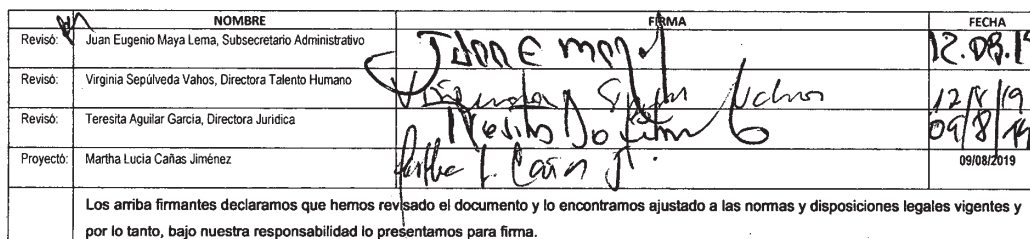 NOMBRE FIRMA FECHA
Revisó: Juan Eugenio Maya Lema, Subsecretario Administrativo 12.08.19
Revisó: Virginia Sepúlveda Vahos, Directora Talento Humano 12/8/19
Revisó: Teresita Aguilar García, Directora Jurídica 09/8/19
Proyectó: Martha Lucia Cañas Jiménez Martha L. Cañas J. 09/08/2019
Los arriba firmantes declaramos que hemos revisado el documento y lo encontramos ajustado a las normas y disposiciones legales vigentes y
por lo tanto, bajo nuestra responsabilidad lo presentamos para firma.